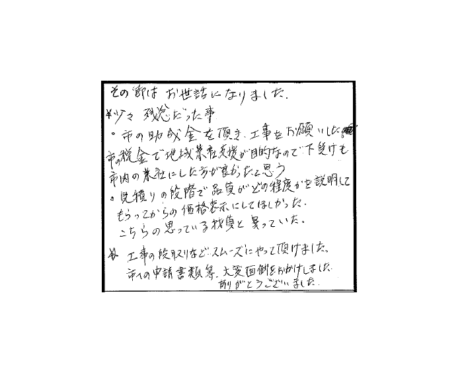 その節は お世話になりました。
*少々 残念だった事
・市の助成金を頂き、工事をお願いした
市の税金で地域業社支援が目的なので下受けも
市内の業社にした方が良かったと思う
・見積りの段階で品質がどの程度かを説明して
もらってからの価格表示にしてほしかった。
こちらの思っている材質と異っていた。
* 工事の段取りなどスムーズにやって頂けました。
市への申請書類等、大変面倒をおかけしました
ありがとうございました